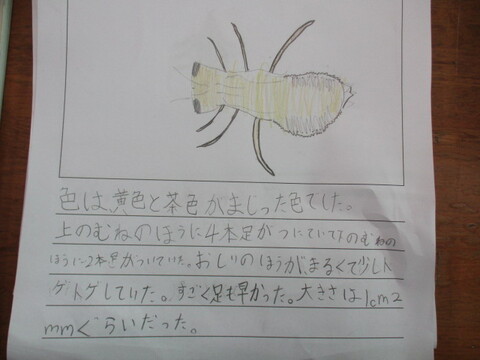 色は、黄色と茶色がまじった色でした。
上のむねのほうに4本足がついていて下のむねの
ほうに2本足がついていた。おしりのほうが、まるくて少しト
ゲトゲしていた。すごく足も早かった。大きさは1cm2
mmぐらいだった。